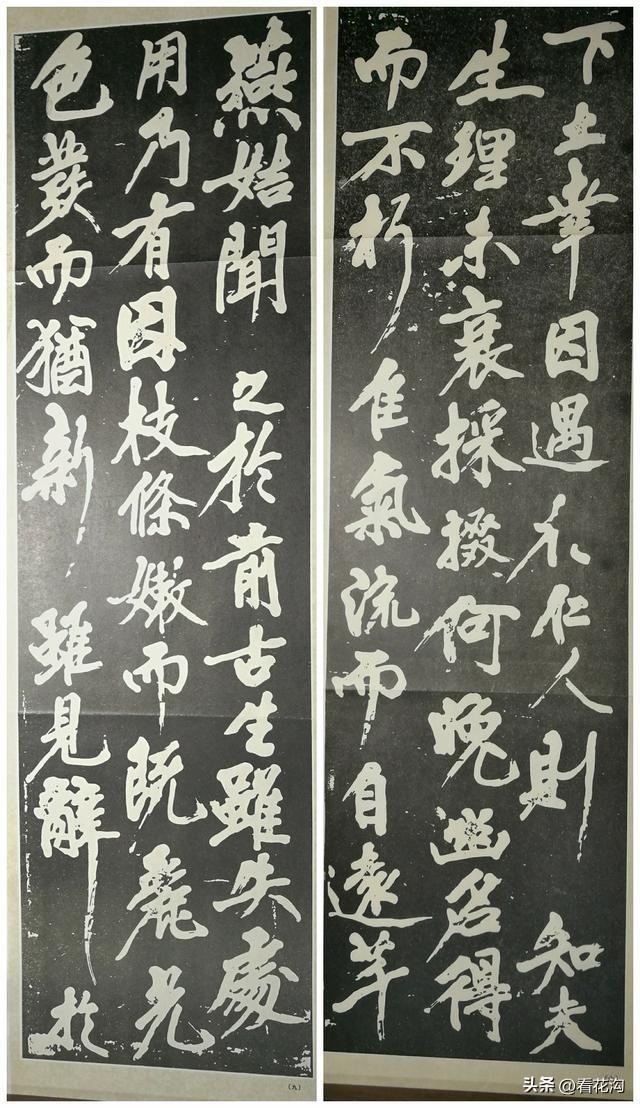 燕始聞之於前古生雖失處
用乃有因枝條嫩而既麗光
色發而猶新雖見辭於
(九)
下土幸因遇於仁人則知夫
生理未衰採掇何晚幽名得
而不朽佳氣流而自遠芊
头条 @看花沟